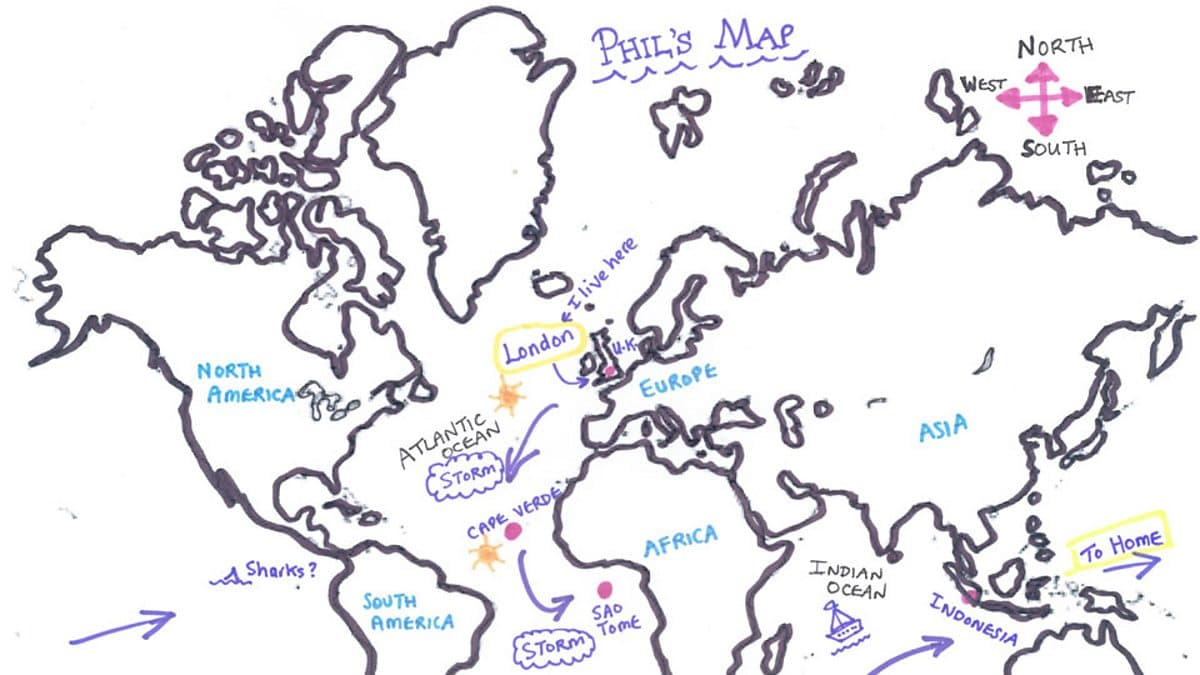 PHIL'S MAP
NORTH
WEST
EAST
SOUTH
I live here
London
U.K.
NORTH
AMERICA
EUROPE
ASIA
ATLANTIC
OCEAN
STORM
CAPE VERDE
AFRICA
To Home
Sharks?
INDIAN
OCEAN
SOUTH
AMERICA
SAO
TOME
INDONESIA
STORM